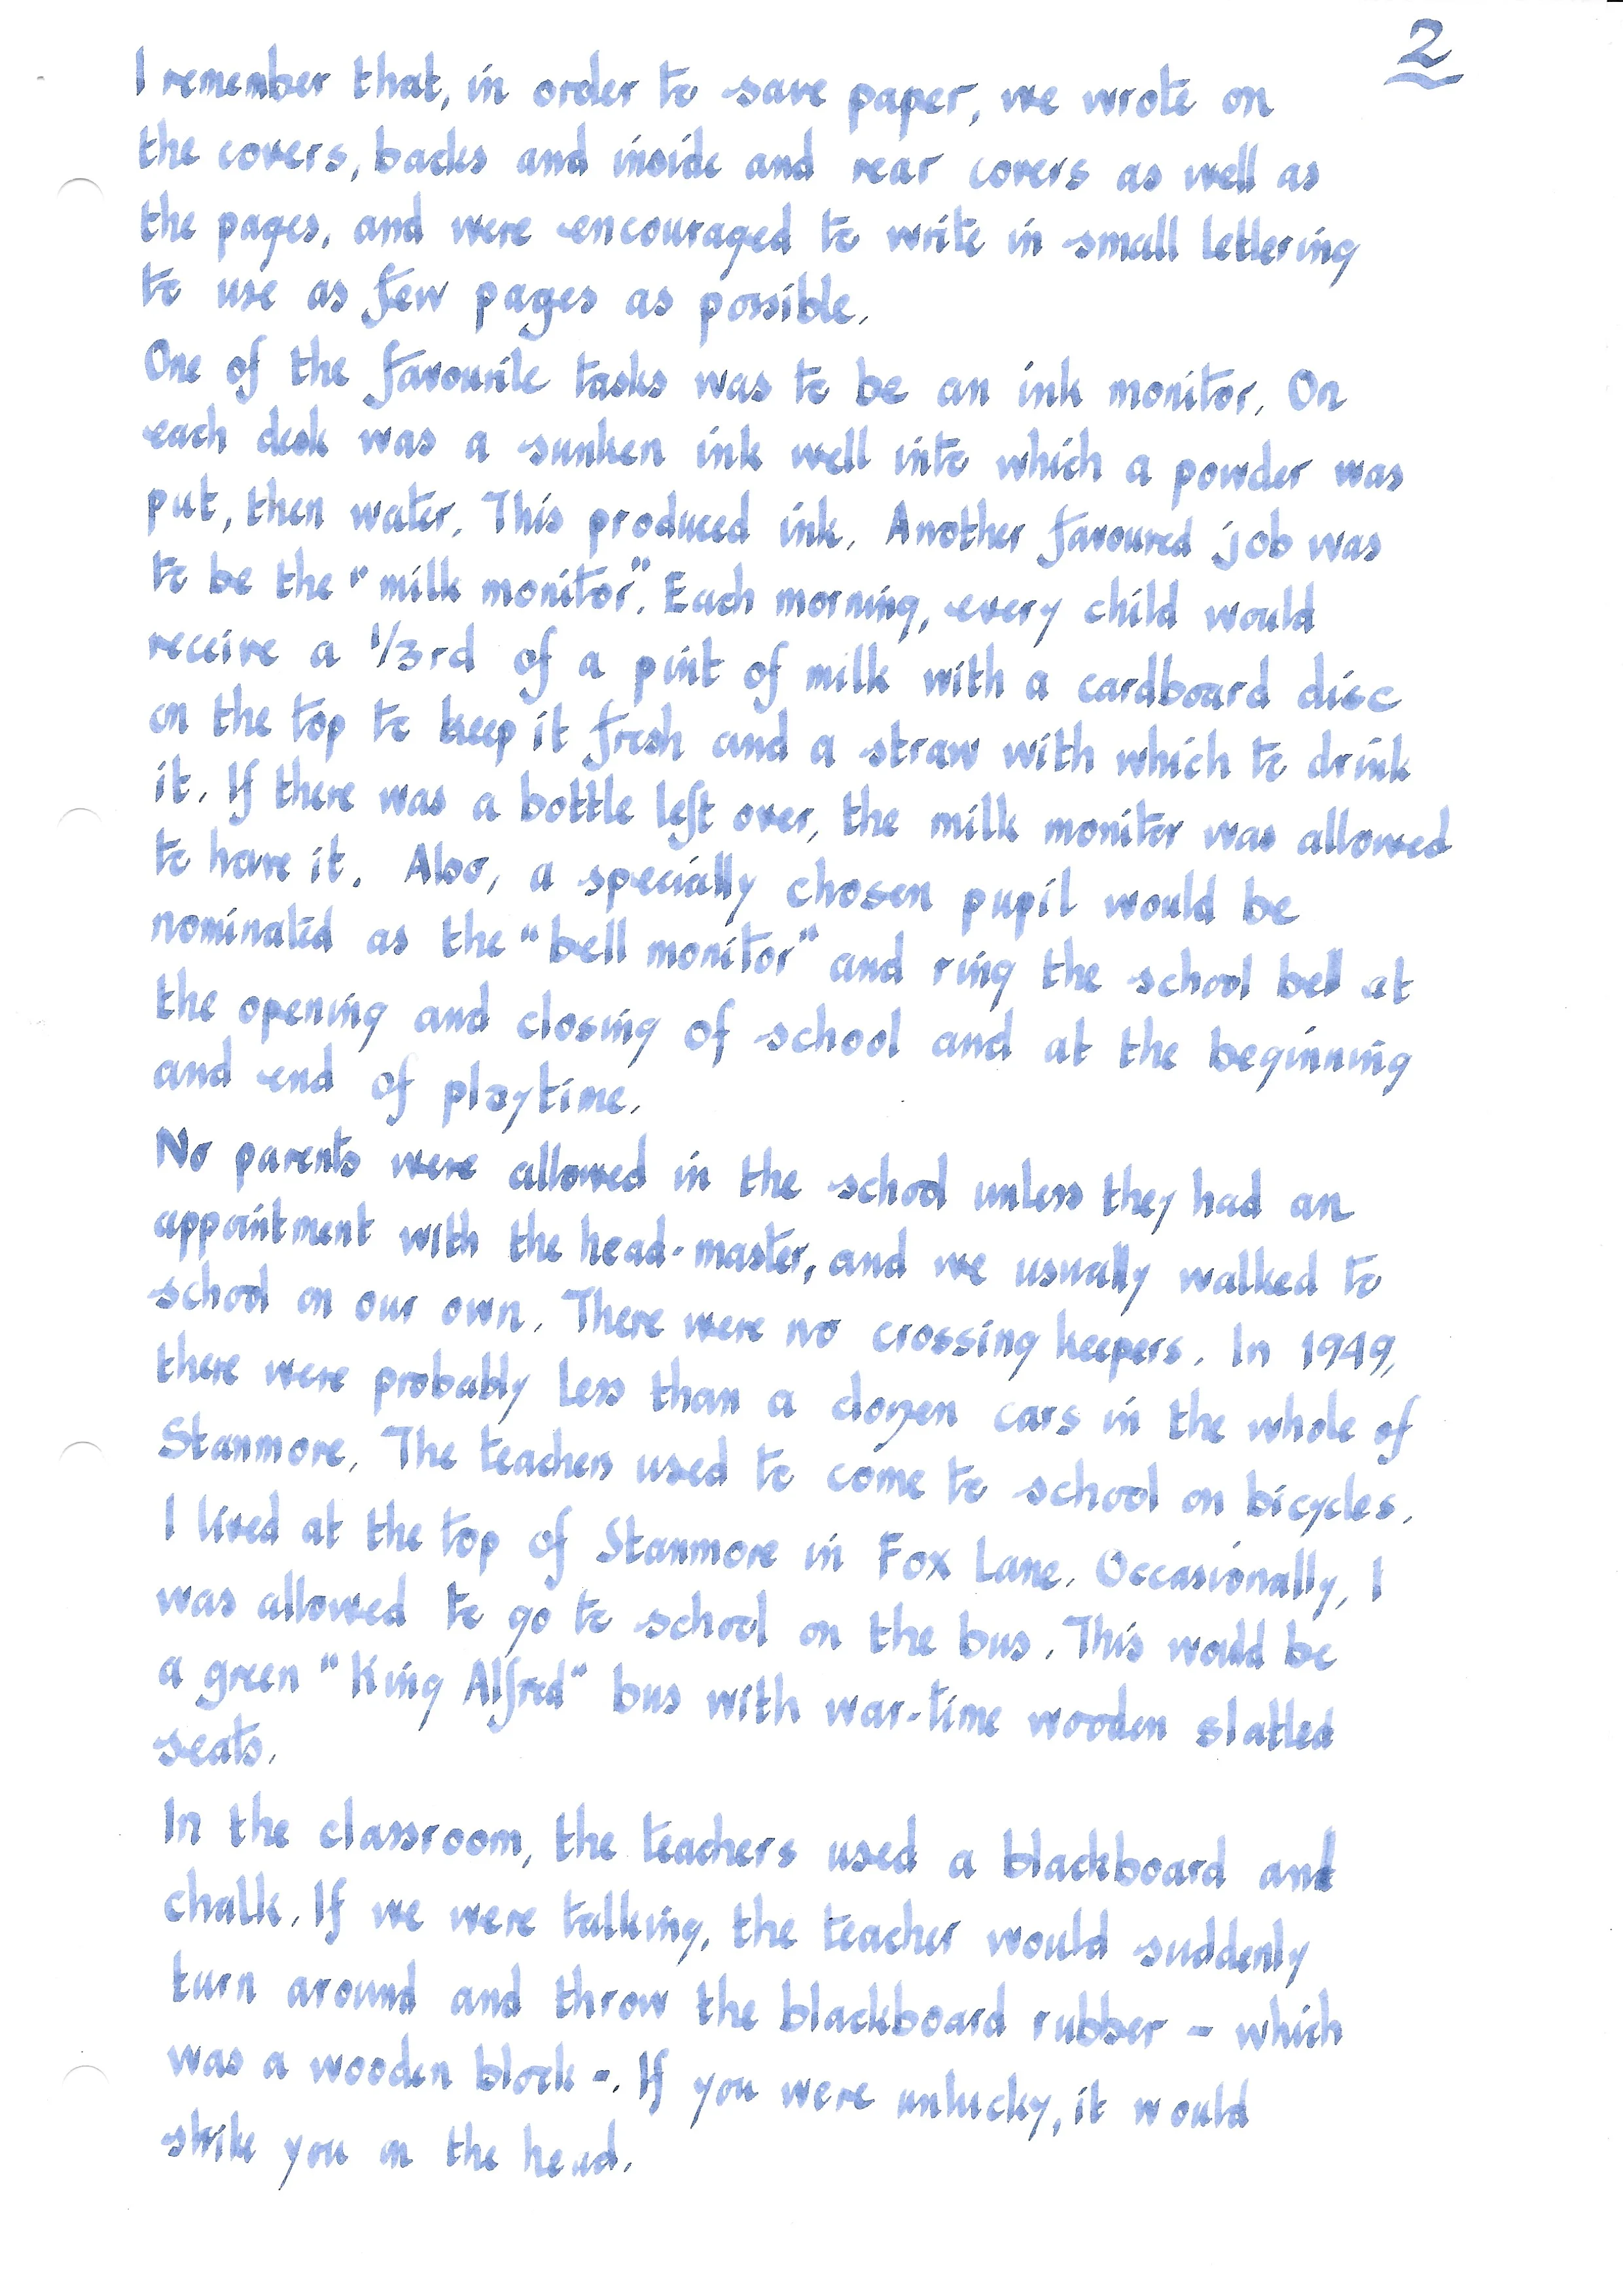 2
I remember that, in order to save paper, we wrote on
the covers, backs and inside and rear covers as well as
the pages, and were encouraged to write in small lettering
to use as few pages as possible.
One of the favourite tasks was to be an ink monitor. On
each desk was a sunken ink well into which a powder was
put, then water. This produced ink. Another favoured job was
to be the "milk monitor". Each morning, every child would
receive a 1/3rd of a pint of milk with a cardboard disc
on the top to keep it fresh and a straw with which to drink
it. If there was a bottle left over, the milk monitor was allowed
to have it. Also, a specially chosen pupil would be
nominated as the "bell monitor" and ring the school bell at
the opening and closing of school and at the beginning
and end of playtime.
No parents were allowed in the school unless they had an
appointment with the head-master, and we usually walked to
school on our own. There were no crossing keepers. In 1949,
there were probably less than a dozen cars in the whole of
Stanmore. The teachers used to come to school on bicycles.
I lived at the top of Stanmore in Fox Lane. Occasionally, I
was allowed to go to school on the bus. This would be
a green "King Alfred" bus with war-time wooden slatted
seats.
In the classroom, the teachers used a blackboard and
chalk. If we were talking, the teacher would suddenly
turn around and throw the blackboard rubber - which
was a wooden block -. If you were unlucky, it would
strike you on the head.